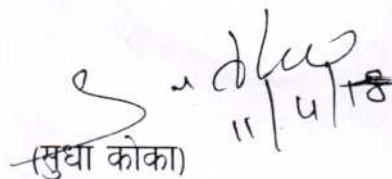 11/4/18
(सुधा कोका)